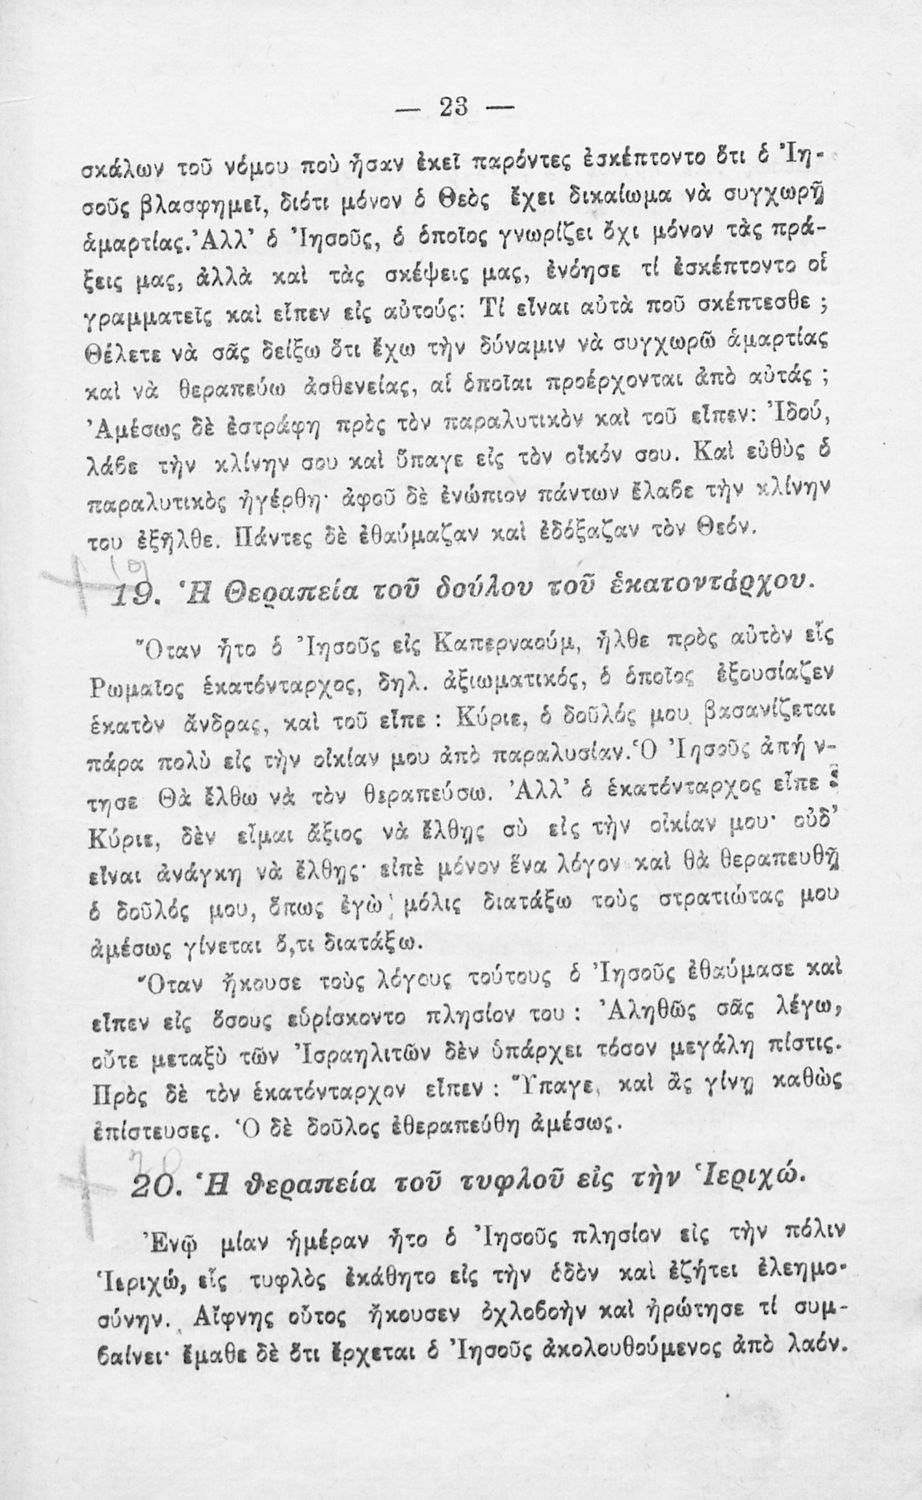 — 23 —
σκάλων τοῦ νόμου ποὺ ἦσαν ἐκεῖ παρόντες ἐσκέπτοντο ὅτι ὁ Ἰη-
σοῦς βλασφημεῖ, διότι μόνον ὁ Θεὸς ἔχει δικαίωμα νὰ συγχωρῇ
ἁμαρτίας. Ἀλλ’ ὁ Ἰησοῦς, ὁ ὁποῖος γνωρίζει ὄχι μόνον τὰς πρά-
ξεις μας, ἀλλὰ καὶ τὰς σκέψεις μας, ἐνόησε τί ἐσκέπτοντο οἱ
γραμματεῖς καὶ εἶπεν εἰς αὐτούς: Τί εἶναι αὐτὰ ποῦ σκέπτεσθε ;
Θέλετε νὰ σᾶς δείξω ὅτι ἔχω τὴν δύναμιν νὰ συγχωρῶ ἁμαρτίας
καὶ νὰ θεραπεύω ἀσθενείας, αἱ ὁποῖαι προέρχονται ἀπὸ αὐτάς ;
Ἀμέσως δὲ ἐστράφη πρὸς τὸν παραλυτικὸν καὶ τοῦ εἶπεν: Ἰδού,
λάβε τὴν κλίνην σου καὶ ὕπαγε εἰς τὸν οἶκόν σου. Καὶ εὐθὺς ὁ
παραλυτικὸς ἠγέρθη· ἀφοῦ δὲ ἐνώπιον πάντων ἔλαβε τὴν κλίνην
του ἐξῆλθε. Πάντες δὲ ἐθαύμαζαν καὶ ἐδόξαζαν τὸν Θεόν.
19
19. Ἡ Θεραπεία τοῦ δούλου τοῦ ἑκατοντάρχου.
Ὅταν ἦτο ὁ Ἰησοῦς εἰς Καπερναούμ, ἦλθε πρὸς αὐτὸν εἷς
Ρωμαῖος ἑκατόνταρχος, δηλ. ἀξιωματικός, ὁ ὁποῖος ἐξουσίαζεν
ἑκατὸν ἄνδρας, καὶ τοῦ εἶπε : Κύριε, ὁ δοῦλός μου βασανίζεται
πάρα πολὺ εἰς τὴν οἰκίαν μου ἀπὸ παραλυσίαν. Ὁ Ἰησοῦς ἀπήν-
τησε Θὰ ἔλθω νὰ τὸν θεραπεύσω. Ἀλλ’ ὁ ἑκατόνταρχος εἶπε :
Κύριε, δὲν εἶμαι ἄξιος νὰ ἔλθῃς σὺ εἰς τὴν οἰκίαν μου· οὐδ’
εἶναι ἀνάγκη νὰ ἔλθῃς· εἰπὲ μόνον ἕνα λόγον καὶ θὰ θεραπευθῇ
ὁ δοῦλός μου, ὅπως ἐγὼ μόλις διατάξω τοὺς στρατιώτας μου
ἀμέσως γίνεται ὅ,τι διατάξω.
Ὅταν ἤκουσε τοὺς λόγους τούτους ὁ Ἰησοῦς ἐθαύμασε καὶ
εἶπεν εἰς ὅσους εὑρίσκοντο πλησίον του : Ἀληθῶς σᾶς λέγω,
οὔτε μεταξὺ τῶν Ἰσραηλιτῶν δὲν ὑπάρχει τόσον μεγάλη πίστις.
Πρὸς δὲ τὸν ἑκατόνταρχον εἶπεν : Ὕπαγε, καὶ ἂς γίνῃ καθὼς
ἐπίστευσες. Ὁ δὲ δοῦλος ἐθεραπεύθη ἀμέσως.
20
20. Ἡ θεραπεία τοῦ τυφλοῦ εἰς τὴν Ἱεριχώ.
Ἐνῷ μίαν ἡμέραν ἦτο ὁ Ἰησοῦς πλησίον εἰς τὴν πόλιν
Ἱεριχώ, εἷς τυφλὸς ἐκάθητο εἰς τὴν ὁδὸν καὶ ἐζήτει ἐλεημο-
σύνην. Αἴφνης οὗτος ἤκουσεν ὀχλοβοὴν καὶ ἠρώτησε τί συμ-
βαίνει· ἔμαθε δὲ ὅτι ἔρχεται ὁ Ἰησοῦς ἀκολουθούμενος ἀπὸ λαόν.